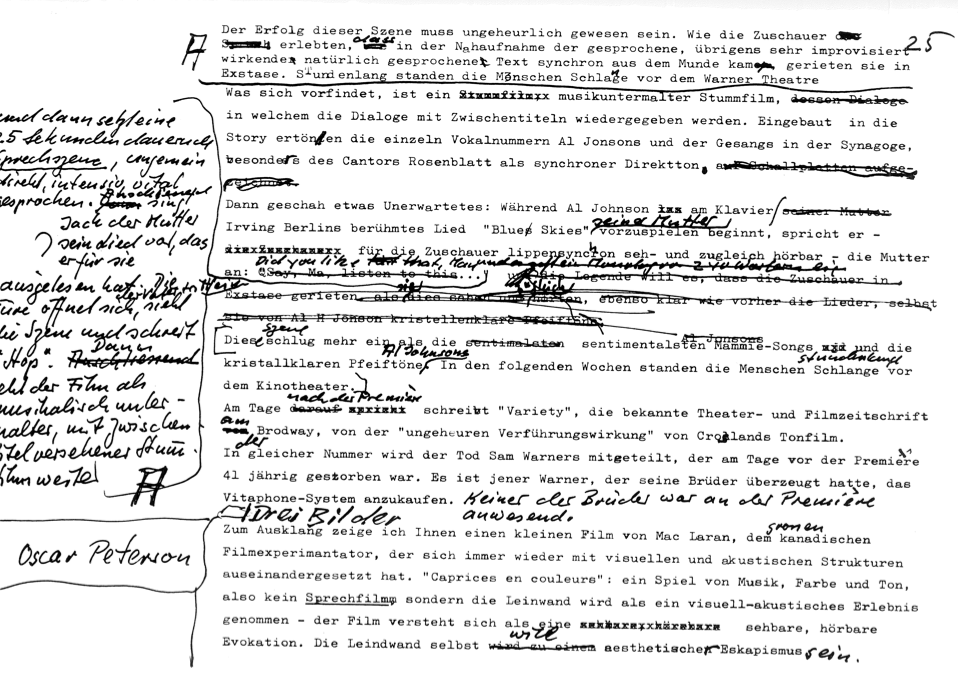 25
Der Erfolg dieser Szene muss ungeheurlich gewesen sein. Wie die Zuschauer
erlebten, dass in der Nahaufnahme der gesprochene, übrigens sehr improvisiert
wirkende, natürlich gesprochene Text synchron aus dem Munde kam, gerieten sie in
Exstase. Stundenlang standen die Menschen Schlange vor dem Warner Theatre
Was sich vorfindet, ist ein musikuntermalter Stummfilm, dessen Dialoge
in welchem die Dialoge mit Zwischentiteln wiedergegeben werden. Eingebaut in die
Story ertönen die einzeln Vokalnummern Al Jonsons und der Gesangs in der Synagoge,
besonders des Cantors Rosenblatt als synchroner Direktton, auf Schallplatten aufge-
zeichnet.
Dann geschah etwas Unerwartetes: Während Al Johnson am Klavier seiner Mutter
seine Mutter
Irving Berlins berühmtes Lied "Blue Skies" vorzuspielen beginnt, spricht er -
für die Zuschauer lippensynchron seh- und zugleich hörbar - die Mutter
Did you like that, Mam
an: "Say, Ma, listen to this...) und die Legende will es, dass die Zuschauer in
Exstase gerieten, als dies sahen und hörten, ebenso klar wie vorher die Lieder, selbst
die von Al H Jonson kristellenklare Pfeiftöne
Szene
Al Jonsons
Diese schlug mehr ein als die sentimalsten sentimentalsten Mammie-Songs und die
Al Johnsons
stundenlang
kristallklaren Pfeiftöne. In den folgenden Wochen standen die Menschen Schlange vor
dem Kinotheater.
nach der Premiere
Am Tage darauf schreibt "Variety", die bekannte Theater- und Filmzeitschrift
am Brodway, von der "ungeheuren Verführungswirkung" von Croslands Tonfilm.
der
In gleicher Nummer wird der Tod Sam Warners mitgeteilt, der am Tage vor der Premiere
41 jährig gestorben war. Es ist jener Warner, der seine Brüder überzeugt hatte, das
Vitaphone-System anzukaufen. Keiner der Brüder war an der Première
anwesend.
Drei Bilder
Zum Ausklang zeige ich Ihnen einen kleinen Film von Mac Laran, dem grossen kanadischen
Filmexperimantator, der sich immer wieder mit visuellen und akustischen Strukturen
auseinandergesetzt hat. "Caprices en couleurs": ein Spiel von Musik, Farbe und Ton,
also kein Sprechfilm sondern die Leinwand wird als ein visuell-akustisches Erlebnis
genommen - der Film versteht sich als eine sehbare, hörbare
Evokation. Die Leindwand selbst wird zu einem will aesthetischer Eskapismus sein.
und dann seh eine
25 Sekunden dauernde
Sprechszene, ungemein
direkt, intensiv, vital
gesprochen.
Jack der Mutter
sein Lied vor, das
er für sie
ausgelesen hat. Die
Türe öffnet sich, der Vater sieht
die Szene und schreit
"Stop". Dann
geht der Film als
musikalisch unter-
malter, mit Zwischen-
titel versehener Stumm-
film weiter
A
Oscar Peterson